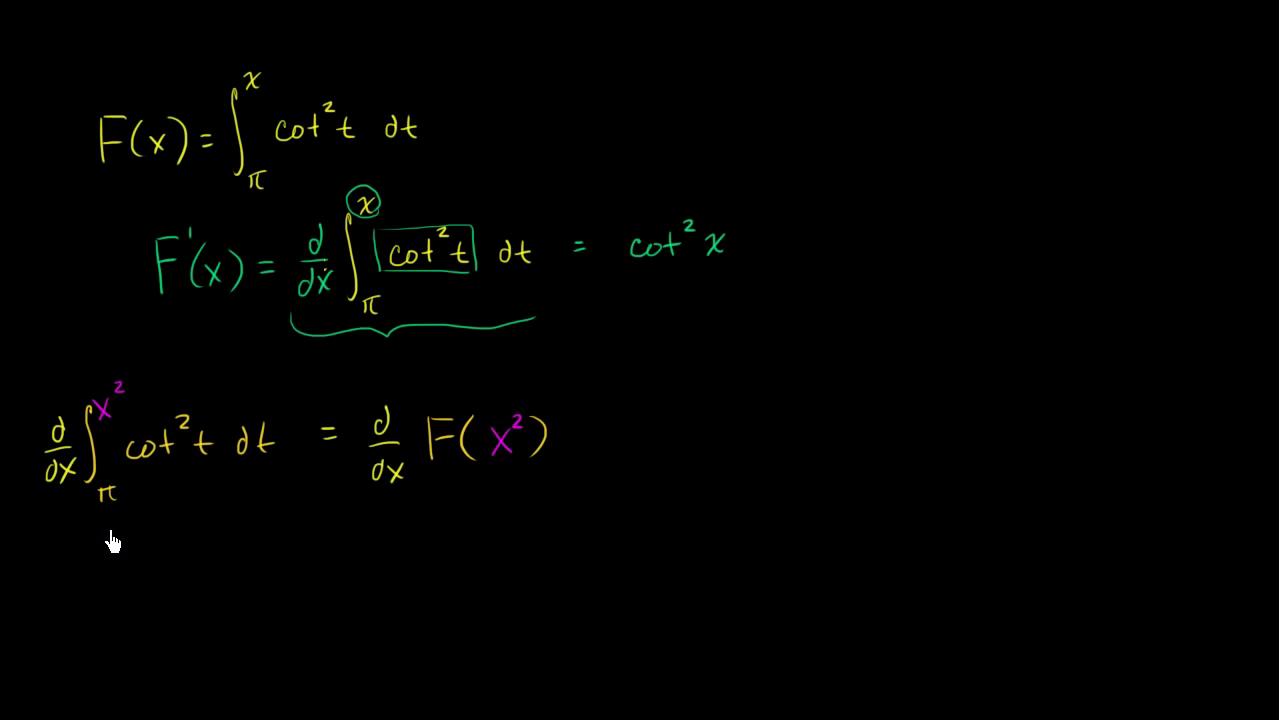 F(x) = ∫_π^x cot² t dt
F'(x) = d/dx ∫_π^x cot² t dt = cot² x
d/dx ∫_π^x² cot² t dt = d/dx F(x²)